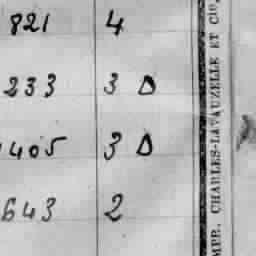 821 4
233 3 D
1405 3 D
643 2
IMPR. CHARLES-LAVAUZELLE ET CIE